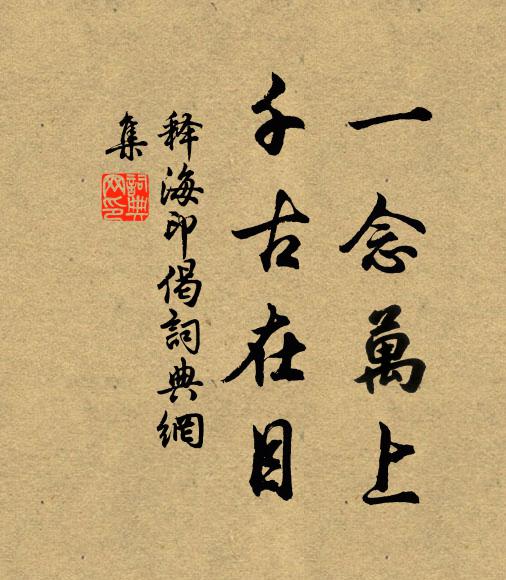 一念萬上
千古在目
释海印偈詞典網
集
詞典網印